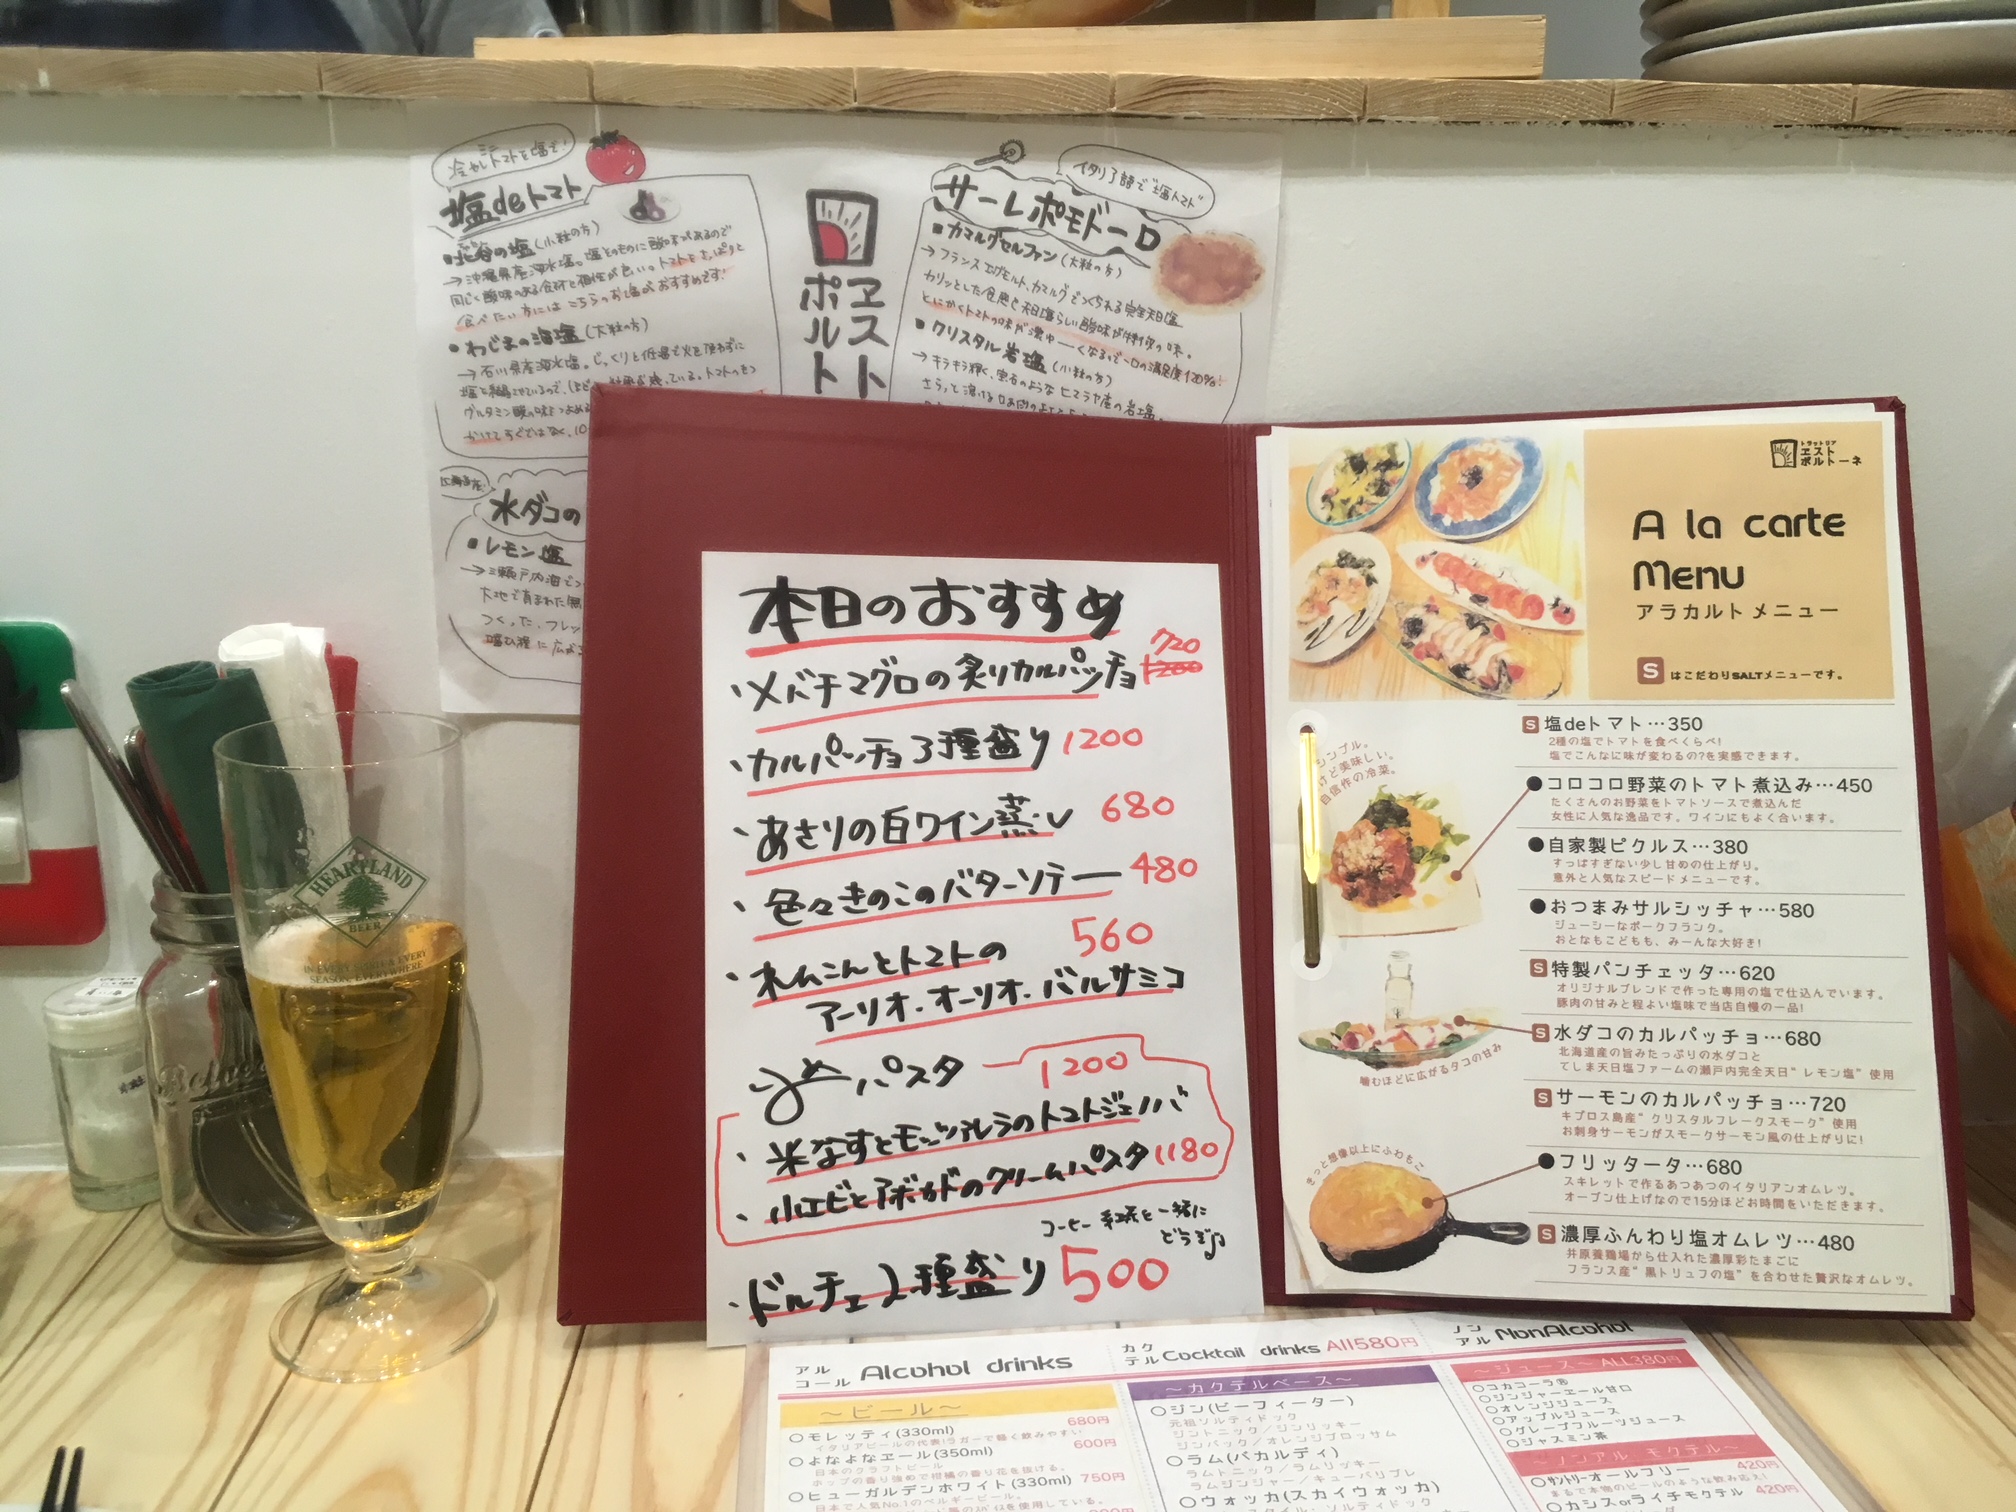 冷やしトマトを塩で!
塩deトマト
(小粒の方)
同じく酸味のある食材と相性が良い。トマトをさっぱりと
食べたい方にはこちらのお塩がおすすめです!
■わじまの海塩(大粒の方)
→石川県産海水塩。じっくりと低温で火を使わずに
ヱスト
ポルト
イタリア語で"塩トマト"
サーレポモドーロ
■カマルグセルファン(大粒の方)
カリッとした食感と天日塩らしい酸味が特徴の味。
■クリスタル岩塩(小粒の方)
→キラキラ輝く、宝石のようなヒマラヤ産の岩塩。
水ダコの
■レモン塩
本日のおすすめ
・メバチマグロの炙りカルパッチョ 720
1200
・カルパッチョ3種盛り 1200
・あさりの白ワイン蒸し 680
・色々きのこのバターソテー 480
・れんこんとトマトの 560
アーリオ・オーリオ・バルサミコ
〆パスタ 1200
・米なすとモッツァレラのトマトジェノバ
・小エビとアボカドのクリームパスタ 1180
コーヒー 紅茶と一緒に
どうぞ♪
・ドルチェ2種盛り 500
トラットリア
ヱスト
ポルトーネ
A la carte
Menu
アラカルトメニュー
S はこだわりSALTメニューです。
シンプル。
けど美味しい。
自信作の冷菜。
S 塩deトマト…350
2種の塩でトマトを食べくらべ!
塩でこんなに味が変わるの?を実感できます。
●コロコロ野菜のトマト煮込み…450
たくさんのお野菜をトマトソースで煮込んだ
女性に人気な逸品です。ワインにもよく合います。
●自家製ピクルス…380
すっぱすぎない少し甘めの仕上がり。
意外と人気なスピードメニューです。
●おつまみサルシッチャ…580
ジューシーなポークフランク。
おとなもこどもも、みーんな大好き!
S 特製パンチェッタ…620
オリジナルブレンドで作った専用の塩で仕込んでいます。
豚肉の甘みと程よい塩味で当店自慢の一品!
S 水ダコのカルパッチョ…680
北海道産の旨みたっぷりの水ダコと
てしま天日塩ファームの瀬戸内完全天日"レモン塩"使用
噛むほどに広がるタコの甘み
S サーモンのカルパッチョ…720
キプロス島産"クリスタルフレークスモーク"使用
お刺身サーモンがスモークサーモン風の仕上がりに!
きっと想像以上にふわもこ
●フリッタータ…680
スキレットで作るあつあつのイタリアンオムレツ。
オーブン仕上げなので15分ほどお時間をいただきます。
S 濃厚ふんわり塩オムレツ…480
井原養鶏場から仕入れた濃厚彩たまごに
フランス産"黒トリュフの塩"を合わせた贅沢なオムレツ。
HEARTLAND
BEER
IN EVERY PLACE & EVERY
SEASON, EVERYWHERE
アル
コール Alcohol drinks
～ビール～
○モレッティ(330ml) 680円
イタリアビールの代表!ラガーで軽く飲みやすい
○よなよなエール(350ml) 600円
日本のクラフトビール
ホップの香り強めで柑橘の香り花を抜ける。
○ヒューガルデンホワイト(330ml) 750円
日本で人気No.1のベルギービール。
カク
テル Cocktail drinks All580円
～カクテルベース～
○ジン(ビーフィーター)
元祖ソルティドック
ジントニック／ジンリッキー
ジンバック／オレンジブロッサム
○ラム(バカルディ)
ラムトニック／ラムリッキー
ラムジンジャー／キューバリブレ
○ウォッカ(スカイウォッカ)
ノン
アル NonAlcohol
～ジュース～ ALL380円
○コカコーラ®
○ジンジャーエール甘口
○オレンジジュース
○アップルジュース
○グレープフルーツジュース
○ジャスミン茶
～ノンアル モクテル～
○サントリーオールフリー 420円
まるで本物のビールのような飲み応え!
○カシスorライチモクテル 420円